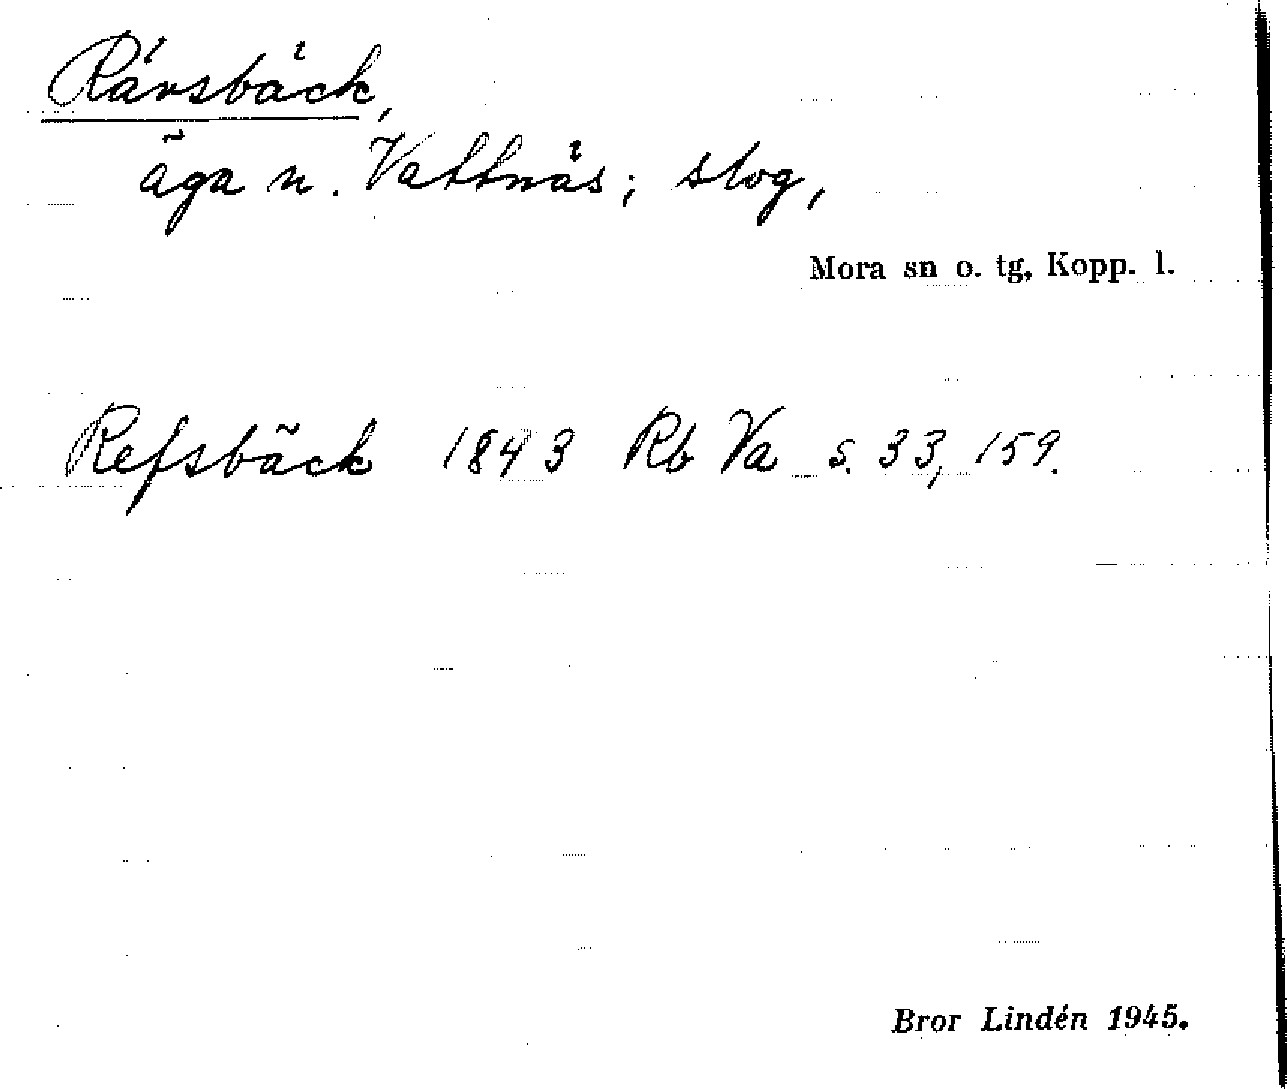 Rävsbäck,
äga n. Vattnäs; slog,
Mora sn o. tg, Kopp. l.
Refsbäck 1843 Rb Va s. 33, 159.
Bror Lindén 1945.